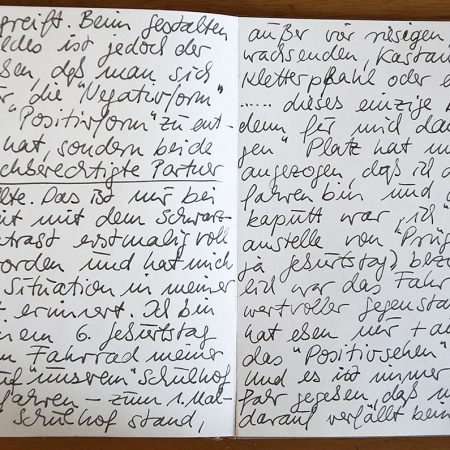 greift. Beim gestalten
ldes ist jedoch der
sen, daß man sich
r, die "Negativform"
"Positivform" zu ent-
hat, sondern beide
chberechtigte Partner
llte. Das ist mir bei
eit mit dem Schwarz-
ntrast erstmalig voll
orden und hat mich
Situation in meiner
t erinnert. Ich bin
nem 6. Geburtstag
m Fahrrad meiner
uf "unserem" Schulhof
fahren – zum 1. Mal –
Schulhof stand,
außer vier riesigen
wachsenden, Kastan
Kletterpfahl oder e
..... dieses einzige
denn für mich da
gen" Platz hat m
angezogen, daß ich d
fahren bin und
kaputt war, "ich"
anstelle von "Prüg
ja Geburtstag) bezo
lich war das Fahr
wertvoller Gegensta
hat eben nur + a
das "Positivsehen"
Und es ist immer
fahr gegeben, daß m
darauf verfällt beim